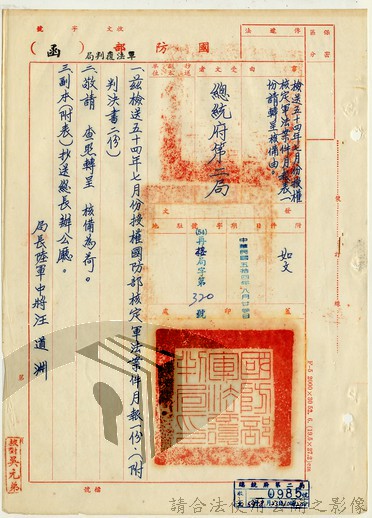 國防部軍法覆判局(函)
收文 字 號
檢送五十四年七月份授權
核定軍法案件月報表一
份請轉呈核備由。
總統府第二局
如文
中華民國五拾四年八月廿
(54)再格局字第320號
一、茲檢送五十四年七月份授權國防部核定軍法案件月報一份(附
判決書二份)
二、敬請 查照轉呈 核備為荷。
三、副本(附表)抄送總長辦公廳。
局長陸軍中將汪道洲
國防部軍法覆判局印
校對吳元弟
檔號
總統府第二局
0985
請合法使用公開之影像